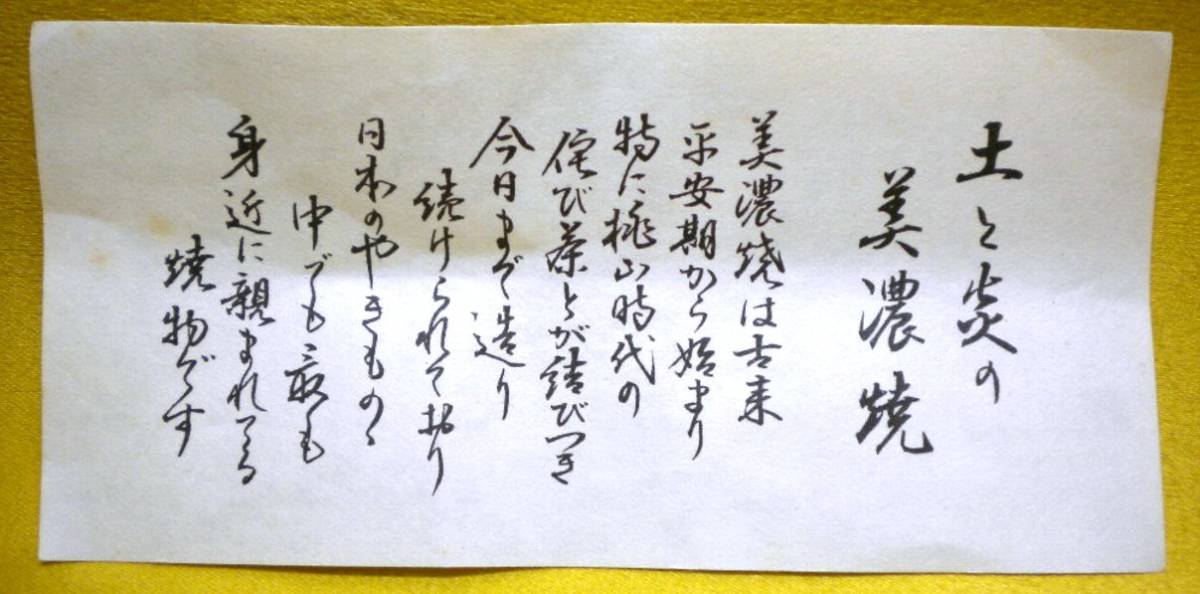 土と炎の
美濃焼
美濃焼は古来
平安期から始まり
特に桃山時代の
侘び茶とが結びつき
今日まで造り
続けられており
日本のやきものゝ
中でも最も
身近に親まれてる
焼物です